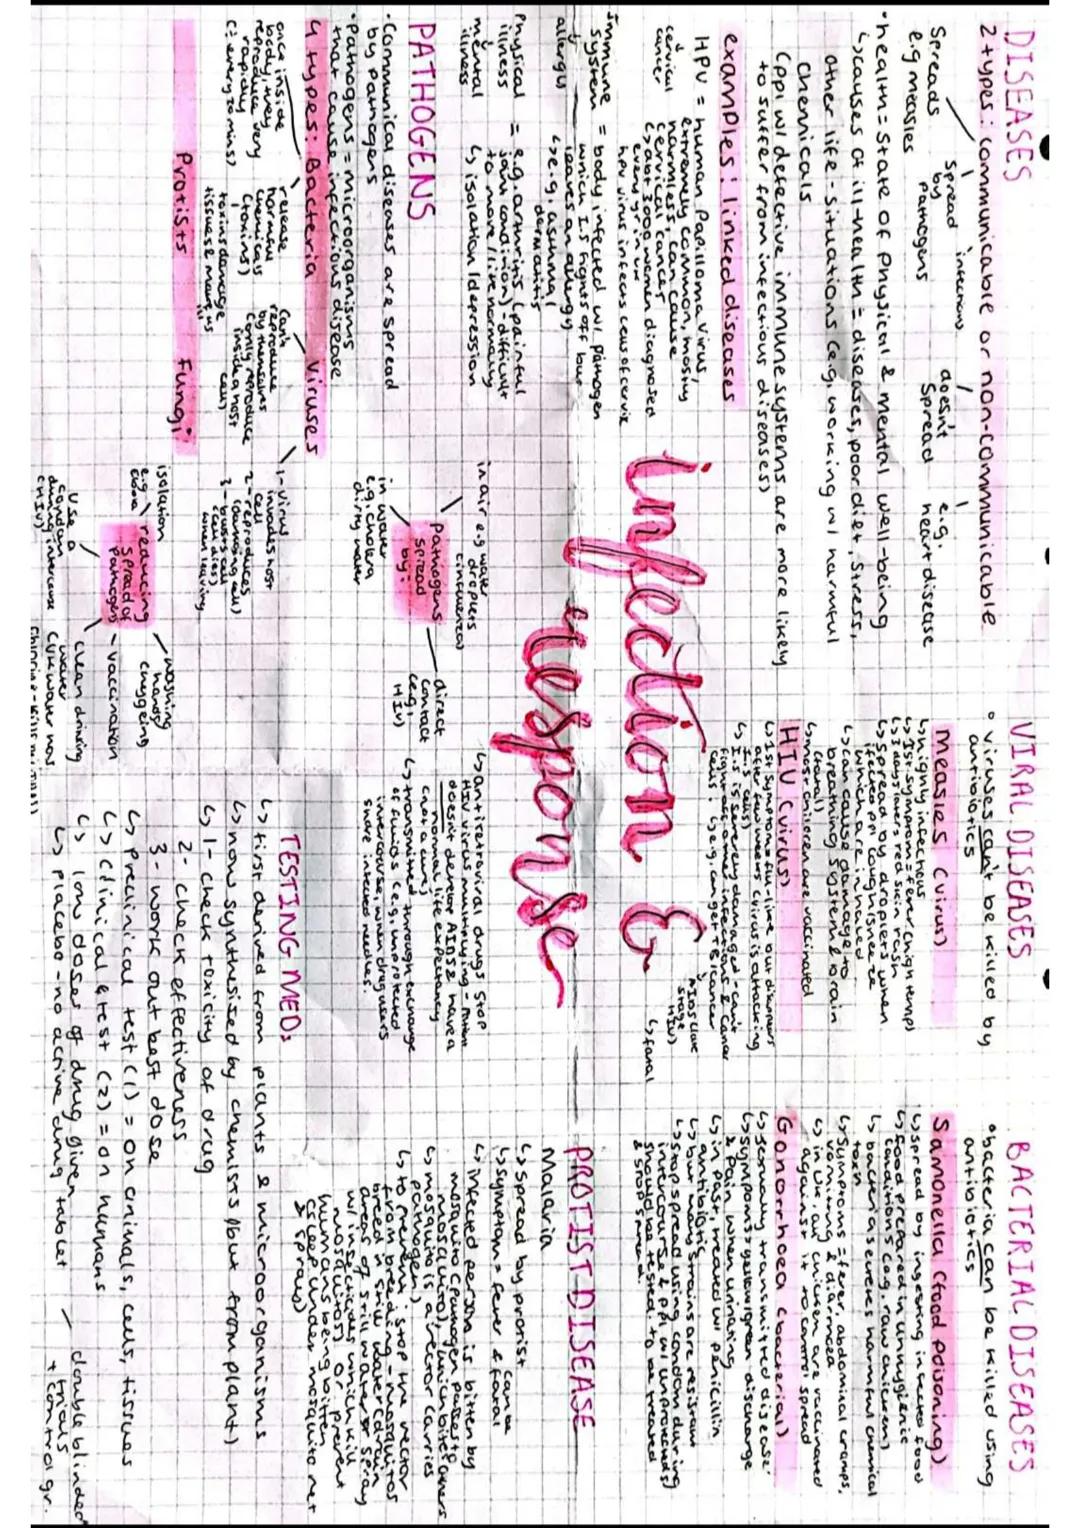 DISEASES
2 types: communicable or non-communicable
spread by pathogens
infections
Spreads
e.g measles
doesn't spread
e.g. heart disease
•health = State of physical & mental well-being
↳causes of ill-health = diseases, poor diet, stress,
other life-situations (e.g. working w/ harmful
chemicals
(ppl w/ defective immune systems are more likely
to suffer from infectious diseases)
examples: linked diseases
HPV = human papilloma virus,
extremely common, mostly
harmless can cause
cervical cancer
↳abt 3000 women diagnosed
every yr in UK
hpv virus infects cells of cervix
cervical
cancer
Immune
system
allergies
= body infected w/ pathogen
which I.S fights off but
leaves an allergy
↳e.g. asthma/
dermatitis
Physical
illness
mental
illness
= e.g. arthritis (painful
joint condition) - difficult
to move/live normally
↳ isolation/depression
PATHOGENS
•Communical diseases are spread
by pathogens
•Pathogens = microorganisms
that cause infectious disease
4 types: Bacteria
Viruses
once inside
body, they
reproduce very
rapidly
(: every 20 mins)
release
harmful
chemicals
(toxins)
toxins damage
tissues & make us
ill
Can't
reproduce
by themselves
(only reproduce
inside a host
cell)
1-virus
invades host
cell
2-reproduces
3-bursts cell
when leaving
Protists
Fungi
infection &
response
pathogens
spread
by:
in air e.g water
droplets
(influenza)
in water
e.g. cholera
dirty water
direct
contact
(e.g.
HIV)
reducing
spread of
pathogens
isolation
e.g.
Use a
condom
during intercourse
(HIV)
washing
hands/
hygiene
vaccination
clean drinking
water
VIRAL DISEASES
• viruses can't be killed by
antibiotics
Measles (virus)
↳highly infectious
↳1st symptom = fever (high temp)
↳3 days later = red skin rash
↳spread by droplets when
infected ppl cough/sneeze
which are inhaled
↳can cause damage to
breathing system & brain
(fatal)
↳most children are vaccinated
HIV (virus)
↳1st symptoms = flu-like but disappears
after few weeks (virus is attacking
I.S cells)
↳ I.S is severely damaged - can't
fight off other infections & cancer
cells: ↳e.g. can get TB/cancer
AIDS (late
stage
HIV)
↳ fatal
↳antiretroviral drugs stop
HIV virus multiplying - patient
doesn't develop AIDS & have a
normal life expectancy
(not a cure)
↳transmitted through exchange
of fluids (e.g. unprotected
intercourse, when drug users
share infected needles.
TESTING MEDs
↳ first derived from plants & microorganisms
↳now synthesised by chemists (but from plant)
↳ 1-check toxicity of drug
2- check effectiveness
3- work out best dose
↳ preclinical test (1) = on animals, cells, tissues
↳ clinical test (2) = on humans
↳ low doses of drug given
↳ placebo - no active drug tablet
double blinded
trials
+ control gr.
BACTERIAL DISEASES
•bacteria can be killed using
antibiotics
Samonella (food poisoning)
↳spread by ingesting infected food
↳food prepared in unhygienic
conditions (e.g. raw chicken)
↳bacteria secretes harmful chemical
toxin
↳Symptoms = fever, abdominal cramps,
vomiting & diarrhoea
↳ in UK, all chicken are vaccinated
against it to control spread
Gonorrhoea (bacterial)
↳sexually transmitted disease
↳symptoms = yellow/green discharge
& pain when urinating
↳in past, treated w/ penicillin
antibiotic
↳but many strains are resistant
↳stop spread using condom during
intercourse & ppl w/ infected
should be tested. to be treated
& stop spread.
PROTIST DISEASE
Malaria
↳spread by protist
↳symptom = fever & can be fatal
↳infected person is bitten by
mosquito (pathogen passes to
mosquito), which bites others
↳mosquito is a vector (carries
pathogen)
↳ to prevent: stop the vector
from breeding - mosquitos
breed in still water (drain
areas of still water or spray
w/ insecticides which kill
mosquitos) or prevent
humans being bitten
(sleep under mosquito net
& sprays)